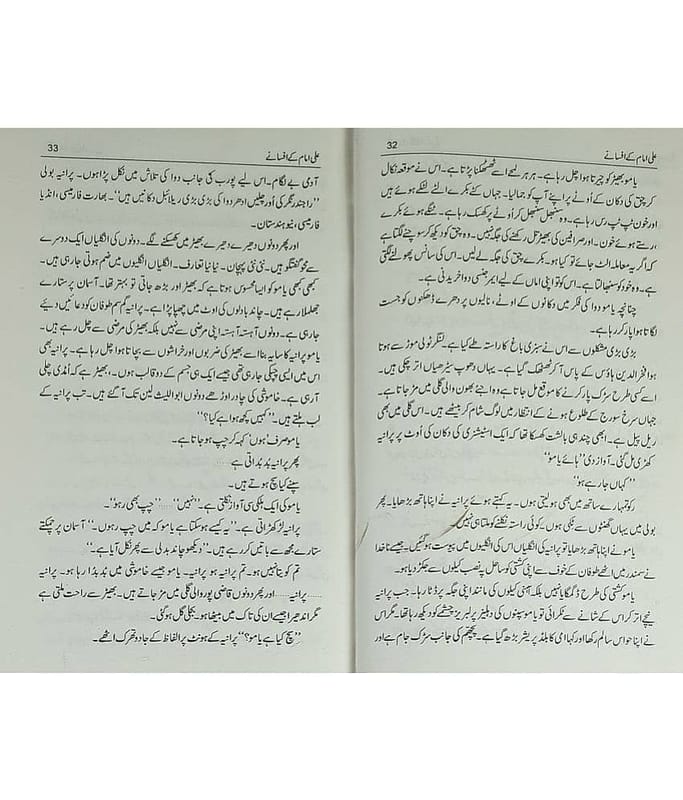 علی امام کے افسانے
32
یامو بھیڑ کو چیرتا ہوا چل رہا ہے۔ ہر ہر لمحے اسے ٹھٹھکنا پڑتا ہے۔ اس نے موقعہ نکال
کر چق کی دکان کے اُوٹے پر اپنے آپ کو جمالیا۔ جہاں کٹے بکرے الٹے لٹکے ہوئے ہیں
اور خون ٹپ ٹپ رس رہا ہے۔ وہ سنبھل سنبھل کر اُوٹے پر کھسک رہا ہے۔ ٹنگے ہوئے بکرے
، رستے ہوئے خون۔ اور صرافین کی بھیڑ تل رکھنے کی جگہ نہیں۔ وہ چق کو دیکھ کر سوچنے لگتا ہے
کہ اگر یہ معاملہ الٹ جائے تو کیا ہو۔ بکرے چق کی جگہ لے لیں۔ اس کی سانس پھولنے لگتی
ہے۔ وہ خود کو سنبھالتا ہے۔ اس کو تو اپنی اماں کے لیے ایمر جنسی دوا خریدنی ہے۔
چنانچہ یامو دوا کی فکر میں دکانوں کے اوٹے، نالیوں پر دھرے ڈھکنوں کو جست
لگاتا ہوا پار کر رہا ہے۔
بڑی بڑی مشکلوں سے اس نے سبزی باغ کا راستہ طے کیا ہے۔ لنگر ٹولی موڑ سے ہوتا
ہوا فخر الدین ہاؤس کے پاس آ کر ٹھٹھک گیا ہے۔ یہاں دھوپ سیڑھیاں اتر چکی ہیں۔
اسے کسی طرح سڑک پار کرنے کا موقع مل جاتا ہے وہ اپنے بھون والی گلی میں مڑ جاتا ہے۔
جہاں سرخ سورج کے طلوع ہونے کے انتظار میں لوگ شام کر بیٹھے ہیں۔ اس گلی میں بھی
ریل پیل ہے۔ ابھی چند ہی بالشت کھسکا تھا کہ ایک اسٹیشنری کی دکان کی اوٹ پر پرانیہ
کھڑی مل گئی۔ آواز دی ”ہائے یامو“
”کہاں جا رہے ہو“
رکو تمہارے ساتھ میں بھی ہو لیتی ہوں۔ یہ کہتے ہوئے پرانیہ نے اپنا ہاتھ بڑھایا۔ پھر
بولی میں یہاں گھنٹوں سے ٹنگی ہوں۔ کوئی راستہ نکلنے کو ملتا ہی نہیں۔
یامو نے اپنا ہاتھ بڑھایا تو پرانیہ کی انگلیاں اس کی انگلیوں میں پیوست ہو گئیں۔ جیسے ناخدا
نے سمندر میں اٹھے طوفان کے خوف سے اپنی کشتی کو ساحل پہ نصب کیلوں سے جکڑ دیا ہو۔
یامو کشتی کی طرح ڈگمگایا نہیں بلکہ آہنی کیلوں کی مانند اپنی جگہ پر ڈٹا رہا۔ جب پرانیہ
نیچے اتر کر اس کے شانے سے ٹکرائی تو یامو سپنوں کی دہلیز پر لبریز چشمے کو دیکھ رہا تھا۔ مگر اس
نے اپنا حواس سالم رکھا اور کہا امی کا بلڈ پریشر بڑھ گیا ہے۔ پچھّم کی جانب سڑک جام ہے اور
علی امام کے افسانے
33
آدمی بے لگام۔ اس لیے پورب کی جانب دوا کی تلاش میں نکل پڑا ہوں۔ پرانیہ بولی
”راجندر نگر کی اُور چلیں ادھر دوا کی بڑی بڑی ریٹائل دکانیں ہیں“۔ بھارت فارمیسی، انڈیا
فارمیسی، نیو ہندستان۔
اور پھر دونوں دھیرے دھیرے بھیڑ میں گھسکنے لگے۔ دونوں کی انگلیاں ایک دوسرے
سے محو گفتگو ہیں۔ نئی نئی پہچان۔ نیا نیا تعارف۔ انگلیاں انگلیوں میں ضم ہوتی جا رہی ہیں۔
کبھی کبھی یامو کو ایسا محسوس ہوتا ہے کہ بھیڑ اور بڑھ جاتی تو بہتر تھا۔ آسمان پر ستارے
جھلملا رہے ہیں۔ چاند بادلوں کی اوٹ میں چھپا پڑا ہے۔ پرانیہ گم سم طوفان کو دعائیں دیئے
جا رہی ہے۔ دونوں آہستہ آہستہ اپنی مرضی سے نہیں بلکہ بھیڑ کی مرضی سے چل رہے ہیں۔
یامو پرانیہ کا سایہ بنا اسے بھیڑ کی ضربوں اور خراشوں سے بچاتا ہوا چل رہا ہے۔ پرانیہ بھی
اس میں ایسی چپکی جا رہی تھی جیسے ایک ہی جسم کے دو قالب ہوں۔ بھیڑ ہے کہ اُمڈی چلی
آ رہی ہے۔ خاموشی کی چادر اوڑھے دونوں ابو اللیث لین تک آ گئے ہیں۔ تب پرانیہ کے
لب ہلتے ہیں۔ ”کہیں کچھ ہوا ہے کیا؟“
یامو صرف 'ہوں' کہہ کر چپ ہو جاتا ہے۔
پھر پرانیہ بُدبُداتی ہے ......
سپنے کیا سچ ہوتے ہیں۔
یامو کی ایک ہلکی سی آواز نکلتی ہے۔ ”نہیں“...... ”چپ بھی رہو“۔
پرانیہ لڑکھڑاتی ہے۔ ”یہ کیسے ہو سکتا ہے یامو کہ میں چپ رہوں۔“ آسمان پر چمکتے
ستارے مجھ سے باتیں کر رہے ہیں۔ ”دیکھو چاند بدلی سے پھر نکل آیا ہے۔“
تم کویتا نہیں ہو۔ تم پرانیہ ہو پرانیہ۔ یامو جیسے خاموشی میں بُدبُدا رہا ہو۔ پرانیہ
پرانیہ...... اور پھر دونوں قاضی پور والی گلی میں مڑ جاتے ہیں۔ بھیڑ سے راحت ملتی ہے
مگر اندھیرا جیسے ان کی تاک میں بیٹھا ہو۔ بجلی گل ہو گئی۔
”سچ کیا ہے یامو؟“ پرانیہ کے ہونٹ پر الفاظ کے جادو تھرک اٹھے۔